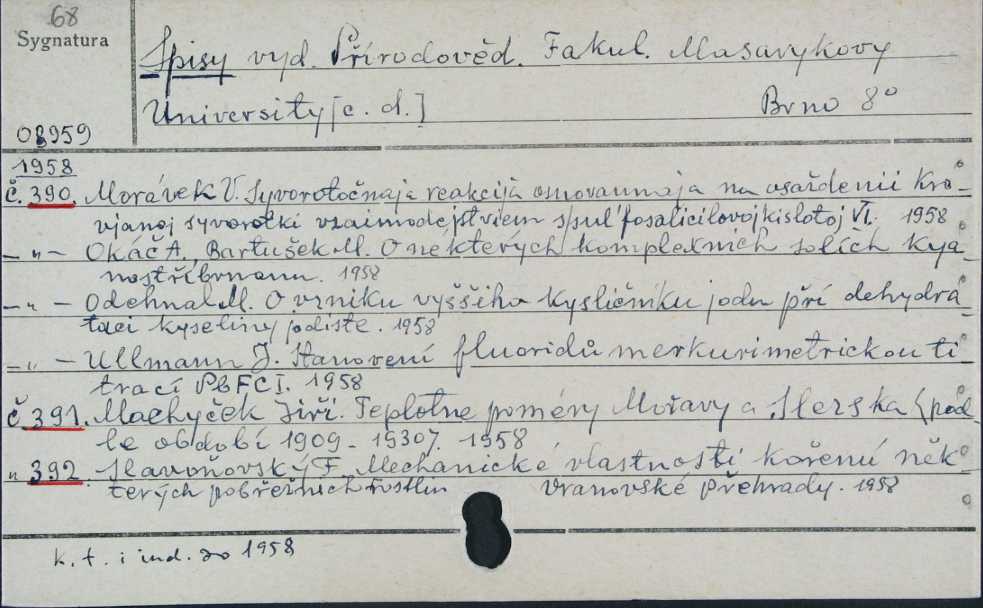 68
Sygnatura
Spisy vyd. Přírodověd. Fakul. Masarykovy
University [c. d.] Brno 8°
08959
1958
Č. 390. Morávek V. Syvorotočnaja reakcija osnovannaja na osaždenii kro-
vjanoj syvorotki vzaimodejstviem s sul'fosalicilovoj kislotoj VI. 1958
– " – Okáč A., Bartušek M. O nekterých komplexních solích kya-
nostříbrnanu. 1958
– " – Odehnal M. O vzniku vyššího kysličníku jodu pří dehydra-
taci kyseliny jodiste. 1958
– " – Ullmann J. Stanovení fluoridů merkurimetrickou ti-
trací PbFCl. 1958
Č 391. Machyček Jiří. Teplotne poměry Moravy a Slezska (pod-
le období 1909-1930). 1958
" 392. Slavoňovský F. Mechanické vlastnosti kořenú něk-
terých pobřežních rostlin Vranovské přehrady. 1958
k. t. i ind. do 1958